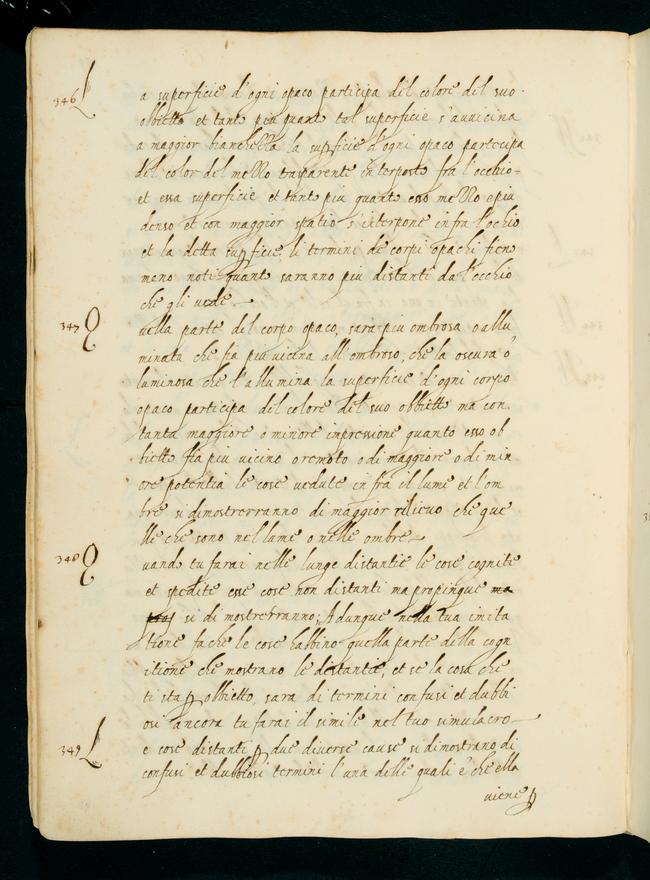 346 L
a superficie d'ogni opaco participa del colore del suo
obbietto et tanto più quanto tal superficie s'auuicina
a maggior bianchezza la supficie d'ogni opaco partecipa
del color del mezzo trasparente interposto fra l'occhio
et essa superficie et tanto piu quanto esso mezzo e piu
denso et con maggior spatio s'interpone infra l'ochio
et la detta supficie. li termini de corpi opachi fien
meno noti quanto saranno più distanti da l'occhio
che gli uede.
347 Q
uella parte del corpo opaco, sara piu ombrosa o allu
minata che fia piu uicina all'ombroso, che la oscura o
luminosa che l'allumina la superficie d'ogni corpo
opaco participa del colore del suo obbietto ma con
tanta maggiore o minore impressione quanto esso ob
bietto fia piu vicino o remoto o di maggiore o di min
ore potentia le cose uedute infra il lume et l'om
bre si dimosterranno di maggior rilieuo che que
lle che sono nel lume o nelle ombre
348 Q
uando tu farai nelle lunge distantie le cose cognite
et spedite esse cose non distanti ma propinque
si di mosterranno; Adunque nella tua imita
tione fa che le cose habbino quella parte della cogn
itione che mostrano le distantie, et se la cosa che
ti sta p obbietto, sara di termini confusi et dubbi
osi ancora tu farai il simile nel tuo simulacro
349 L
e cose distanti p due diuerse cause si dimostrano di
confusi et dubbiosi termini l'una delle quali è che ella
uiene p